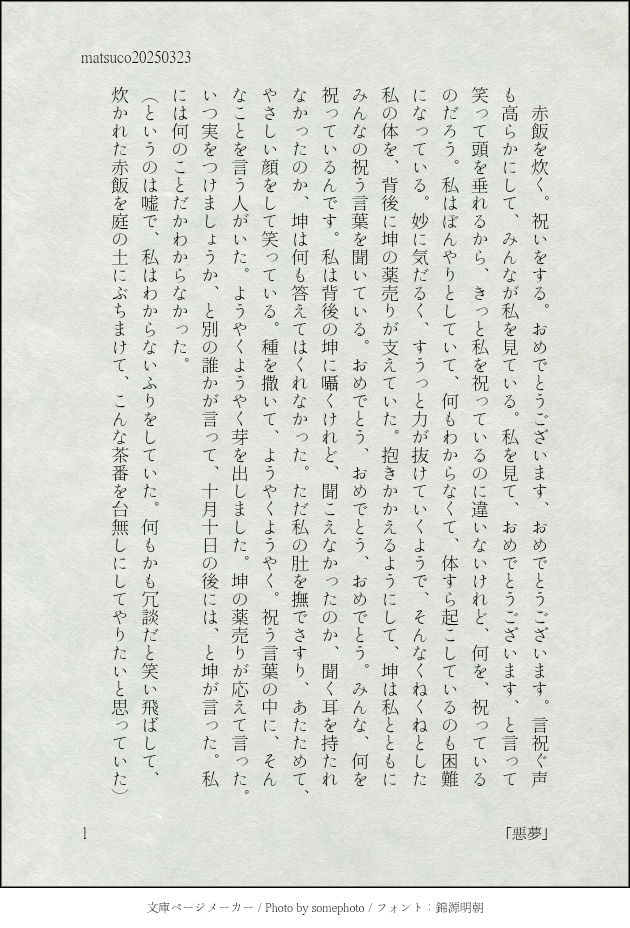 matsuco20250323
　赤飯を炊く。祝いをする。おめでとうございます、おめでとうございます。言祝ぐ声
も高らかにして、みんなが私を見ている。私を見て、おめでとうございます、と言って
笑って頭を垂れるから、きっと私を祝っているのに違いないけれど、何を、祝っている
のだろう。私はぼんやりとしていて、何もわからなくて、体すら起こしているのも困難
になっている。妙に気だるく、すうっと力が抜けていくようで、そんなくねくねとした
私の体を、背後に坤の薬売りが支えていた。抱きかかえるようにして、坤は私とともに
みんなの祝う言葉を聞いている。おめでとう、おめでとう、おめでとう。みんな、何を
祝っているんです。私は背後の坤に囁くけれど、聞こえなかったのか、聞く耳を持たれ
なかったのか、坤は何も答えてはくれなかった。ただ私の肚を撫でさすり、あたためて、
やさしい顔をして笑っている。種を撒いて、ようやくようやく。祝う言葉の中に、そん
なことを言う人がいた。ようやくようやく芽を出しました。坤の薬売りが応えて言った。
いつ実をつけましょうか、と別の誰かが言って、十月十日の後には、と坤が言った。私
には何のことだかわからなかった。
（というのは嘘で、私はわからないふりをしていた。何もかも冗談だと笑い飛ばして、
炊かれた赤飯を庭の土にぶちまけて、こんな茶番を台無しにしてやりたいと思っていた）
「悪夢」
1
文庫ページメーカー / Photo by somephoto / フォント：錦源明朝